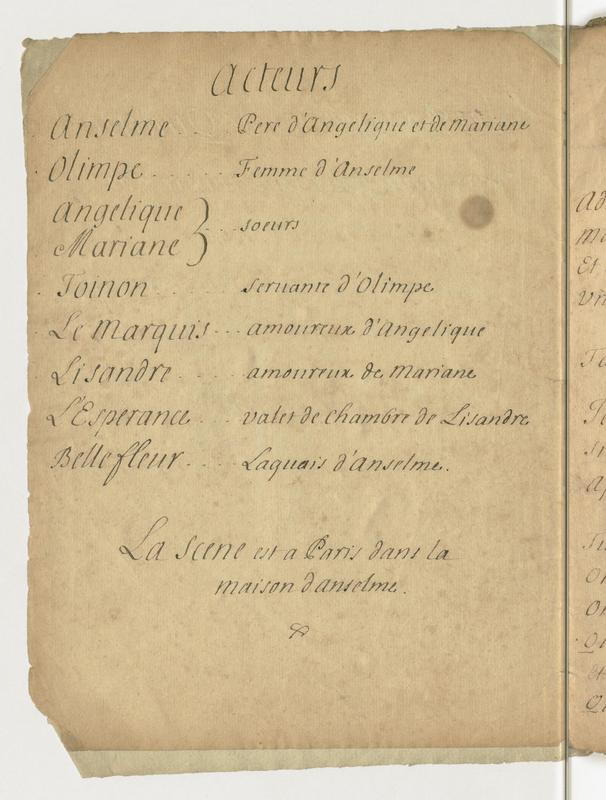 Acteurs
Anselme . . Pere d'Angelique et de Mariane
Olimpe . . . . . . Femme d'Anselme
Angelique
Mariane } . . . soeurs
Toinon . . . . . servante d'Olimpe
Le Marquis . . . amoureux d'Angelique
Lisandre . . . . amoureux de Mariane
L'Esperance . . . valet de chambre de Lisandre
Bellefleur . . . . Laquais d'Anselme.
La scene est a Paris dans la
maison d'anselme.